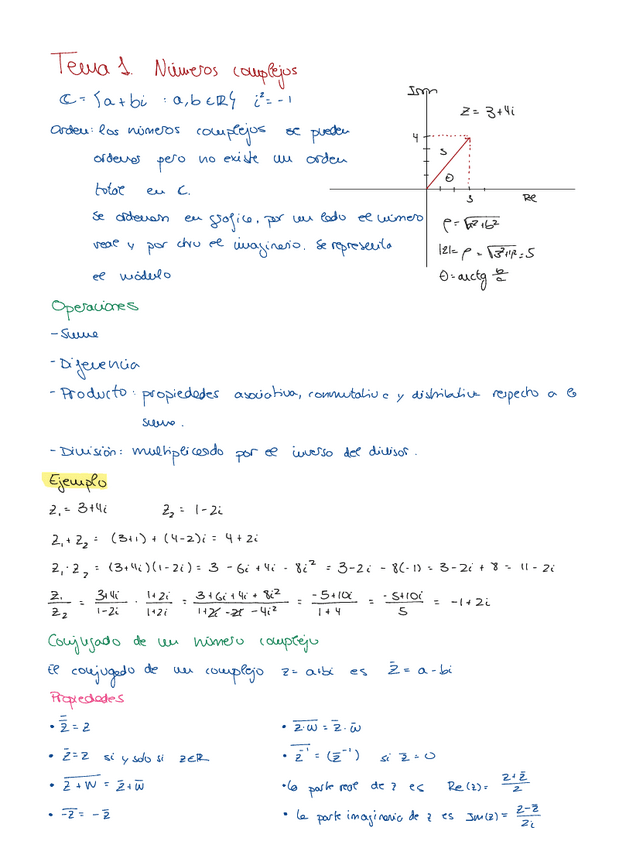 Tema 1. Números complejos
ℂ = {a + bi : a, b ∈ ℝ} i² = -1
Orden: los números complejos se pueden
ordenar pero no existe un orden
total en ℂ.
Se ordenan en gráfico, por un lado el número
real y por otro el imaginario. Se representa
el módulo
Im
z = 3+4i
4
5
θ
3
Re
ρ = √a²+b²
|z| = ρ = √3²+4² = 5
θ = arctg b/a
Operaciones
- Suma
- Diferencia
- Producto: propiedades asociativa, conmutativa y distributiva respecto a la
suma.
- División: multiplicando por el inverso del divisor.
Ejemplo
z₁ = 3+4i z₂ = 1-2i
z₁ + z₂ = (3+1) + (4-2)i = 4+2i
z₁ · z₂ = (3+4i)(1-2i) = 3 - 6i + 4i - 8i² = 3-2i - 8(-1) = 3-2i + 8 = 11-2i
z₁/z₂ = 3+4i/1-2i · 1+2i/1+2i = 3+6i+4i+8i²/1+2i-2i-4i² = -5+10i/1+4 = -5+10i/5 = -1+2i
Conjugado de un número complejo
El conjugado de un complejo z = a+bi es z̄ = a - bi
Propiedades
• z̿ = z
• z̄ = z si y solo si z∈ℝ
• \overline{z+w} = z̄ + w̄
• \overline{-z} = -z̄
• \overline{z·w} = z̄ · w̄
• \overline{z⁻¹} = (z̄⁻¹) si z = 0
• la parte real de z es Re(z) = z+z̄/2
• la parte imaginaria de z es Im(z) = z-z̄/2i